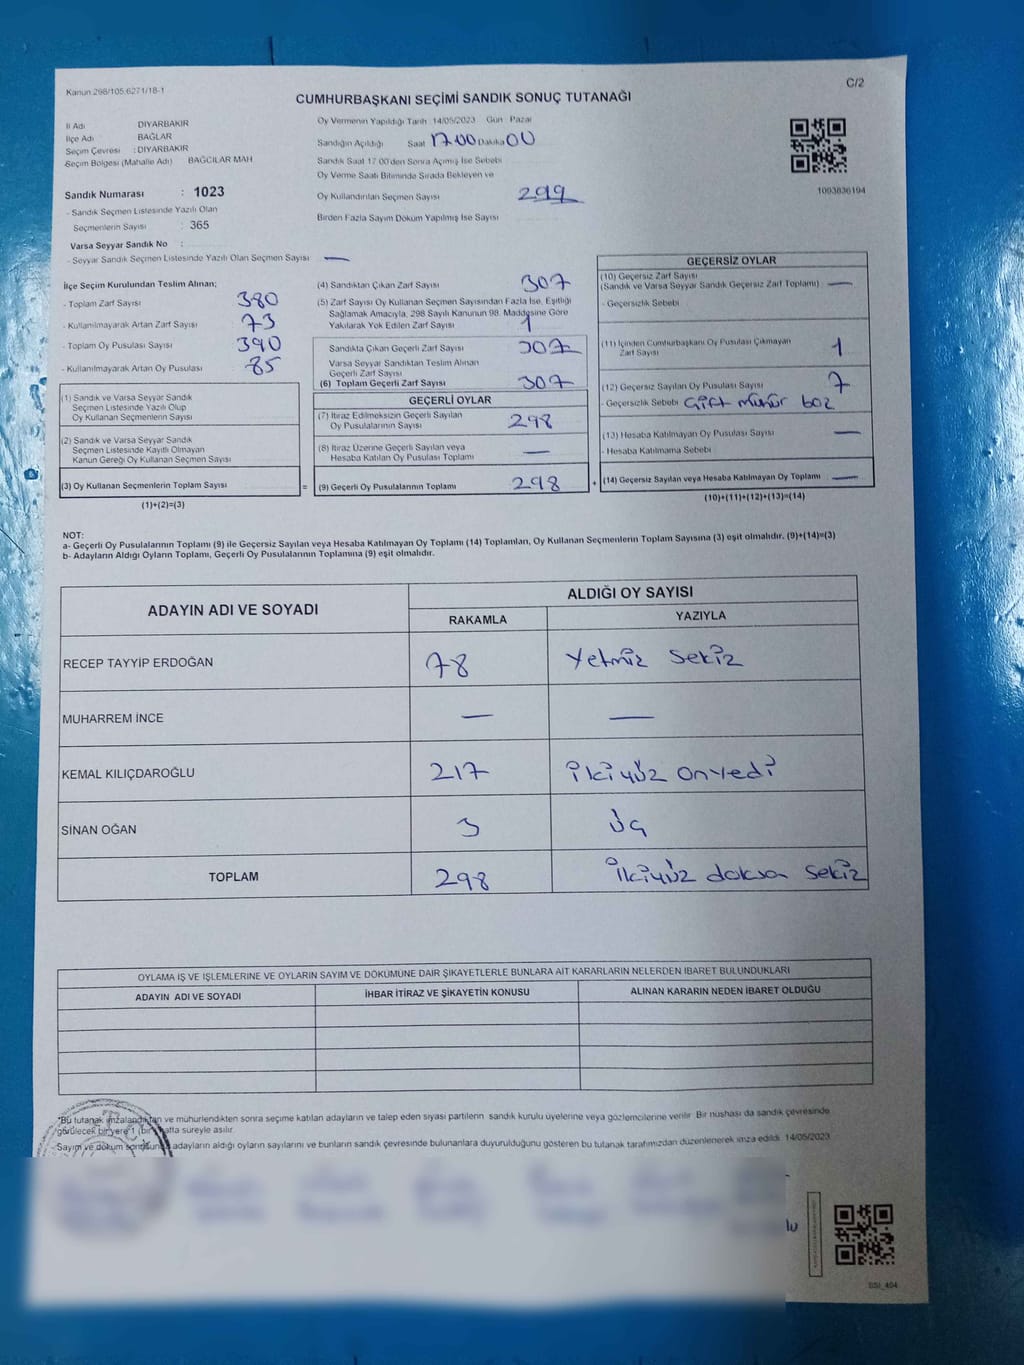 Kanun 298/105,6271/18-1
C/2
CUMHURBAŞKANI SEÇİMİ SANDIK SONUÇ TUTANAĞI
İl Adı DİYARBAKIR
İlçe Adı BAĞLAR
Seçim Çevresi : DİYARBAKIR
Seçim Bölgesi (Mahalle Adı) BAĞCILAR MAH
Sandık Numarası : 1023
- Sandık Seçmen Listesinde Yazılı Olan
Seçmenlerin Sayısı : 365
Varsa Seyyar Sandık No :
- Seyyar Sandık Seçmen Listesinde Yazılı Olan Seçmen Sayısı —
Oy Vermenin Yapıldığı Tarih 14/05/2023 Gün Pazar
Sandığın Açıldığı Saat 17:00 Dakika 00
Sandık Saat 17 00'den Sonra Açılmış İse Sebebi
Oy Verme Saati Bitiminde Sırada Bekleyen ve
Oy Kullandırılan Seçmen Sayısı 299
Birden Fazla Sayım Döküm Yapılmış İse Sayısı
1003836194
İlçe Seçim Kurulundan Teslim Alınan;
- Toplam Zarf Sayısı 380
- Kullanılmayarak Artan Zarf Sayısı 73
- Toplam Oy Pusulası Sayısı 390
- Kullanılmayarak Artan Oy Pusulası 85
(1) Sandık ve Varsa Seyyar Sandık
Seçmen Listesinde Yazılı Olup
Oy Kullanan Seçmenlerin Sayısı
(2) Sandık ve Varsa Seyyar Sandık
Seçmen Listesinde Kayıtlı Olmayan
Kanun Gereği Oy Kullanan Seçmen Sayısı
(3) Oy Kullanan Seçmenlerin Toplam Sayısı =
(1)+(2)=(3)
(4) Sandıktan Çıkan Zarf Sayısı 307
(5) Zarf Sayısı Oy Kullanan Seçmen Sayısından Fazla İse, Eşitliği
Sağlamak Amacıyla, 298 Sayılı Kanunun 98. Maddesine Göre
Yakılarak Yok Edilen Zarf Sayısı 1
Sandıkta Çıkan Geçerli Zarf Sayısı 307
Varsa Seyyar Sandıktan Teslim Alınan
Geçerli Zarf Sayısı
(6) Toplam Geçerli Zarf Sayısı 307
GEÇERLİ OYLAR
(7) İtiraz Edilmeksizin Geçerli Sayılan
Oy Pusulalarının Sayısı 298
(8) İtiraz Üzerine Geçerli Sayılan veya
Hesaba Katılan Oy Pusulası Toplamı —
(9) Geçerli Oy Pusulalarının Toplamı 298 +
GEÇERSİZ OYLAR
(10) Geçersiz Zarf Sayısı
(Sandık ve Varsa Seyyar Sandık Geçersiz Zarf Toplamı) —
- Geçersizlik Sebebi
(11) İçinden Cumhurbaşkanı Oy Pusulası Çıkmayan
Zarf Sayısı 1
(12) Geçersiz Sayılan Oy Pusulası Sayısı 7
- Geçersizlik Sebebi Çift mühür boz
(13) Hesaba Katılmayan Oy Pusulası Sayısı —
- Hesaba Katılmama Sebebi
(14) Geçersiz Sayılan veya Hesaba Katılmayan Oy Toplamı —
(10)+(11)+(12)+(13)=(14)
NOT:
a- Geçerli Oy Pusulalarının Toplamı (9) ile Geçersiz Sayılan veya Hesaba Katılmayan Oy Toplamı (14) Toplamları, Oy Kullanan Seçmenlerin Toplam Sayısına (3) eşit olmalıdır. (9)+(14)=(3)
b- Adayların Aldığı Oyların Toplamı, Geçerli Oy Pusulalarının Toplamına (9) eşit olmalıdır.
ADAYIN ADI VE SOYADI ALDIĞI OY SAYISI
RAKAMLA YAZIYLA
RECEP TAYYİP ERDOĞAN 78 Yetmiz Sekiz
MUHARREM İNCE — —
KEMAL KILIÇDAROĞLU 217 İkiyüz Onyedi
SİNAN OĞAN 3 üç
TOPLAM 298 İkiyüz doksan Sekiz
OYLAMA İŞ VE İŞLEMLERİNE VE OYLARIN SAYIM VE DÖKÜMÜNE DAİR ŞİKAYETLERLE BUNLARA AİT KARARLARIN NELERDEN İBARET BULUNDUKLARI
ADAYIN ADI VE SOYADI İHBAR İTİRAZ VE ŞİKAYETİN KONUSU ALINAN KARARIN NEDEN İBARET OLDUĞU
*Bu tutanak imzalandıktan ve mühürlendikten sonra seçime katılan adayların ve talep eden siyasi partilerin sandık kurulu üyelerine veya gözlemcilerine verilir. Bir nüshası da sandık çevresinde
görülecek bir yere 1 (bir) hafta süreyle asılır.
Sayım ve döküm sonucunda adayların aldığı oyların sayılarını ve bunların sandık çevresinde bulunanlara duyurulduğunu gösteren bu tutanak tarafımızdan düzenlenerek imza edildi. 14/05/2023
lu
SSI_404